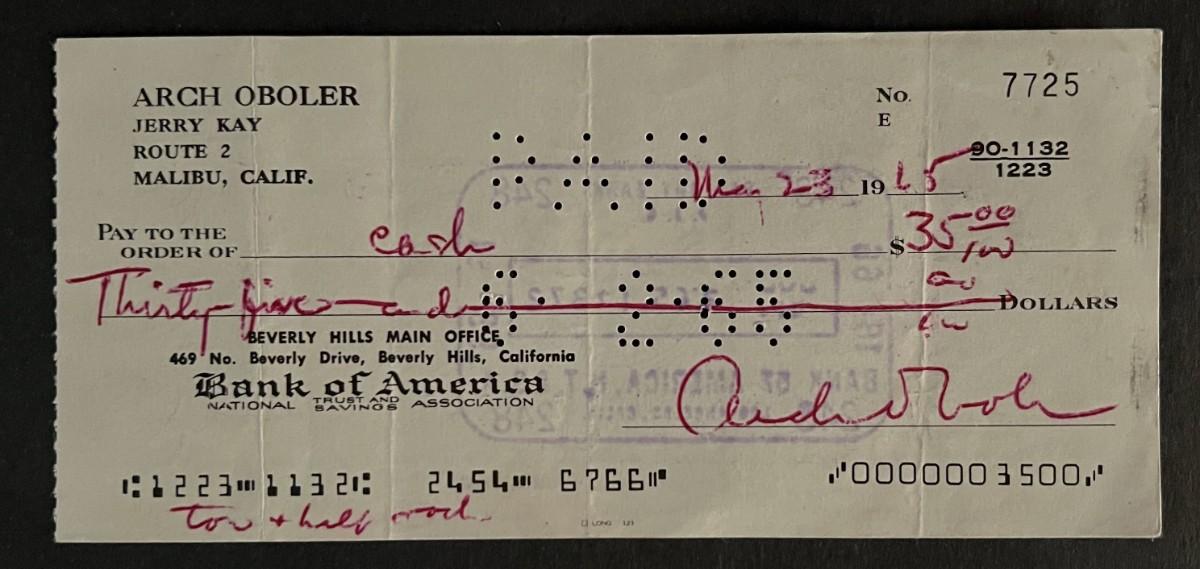 ARCH OBOLER
JERRY KAY
ROUTE 2
MALIBU, CALIF.
No. 7725
E
90-1132
1223
Mar. 23 1965
PAY TO THE
ORDER OF cash $35 00/100
Thirty five and 00/100 DOLLARS
BEVERLY HILLS MAIN OFFICE
469 No. Beverly Drive, Beverly Hills, California
Bank of America
NATIONAL TRUST AND SAVINGS ASSOCIATION
Arch Oboler
1223 1132 2454 6766 0000003500
LONG 123